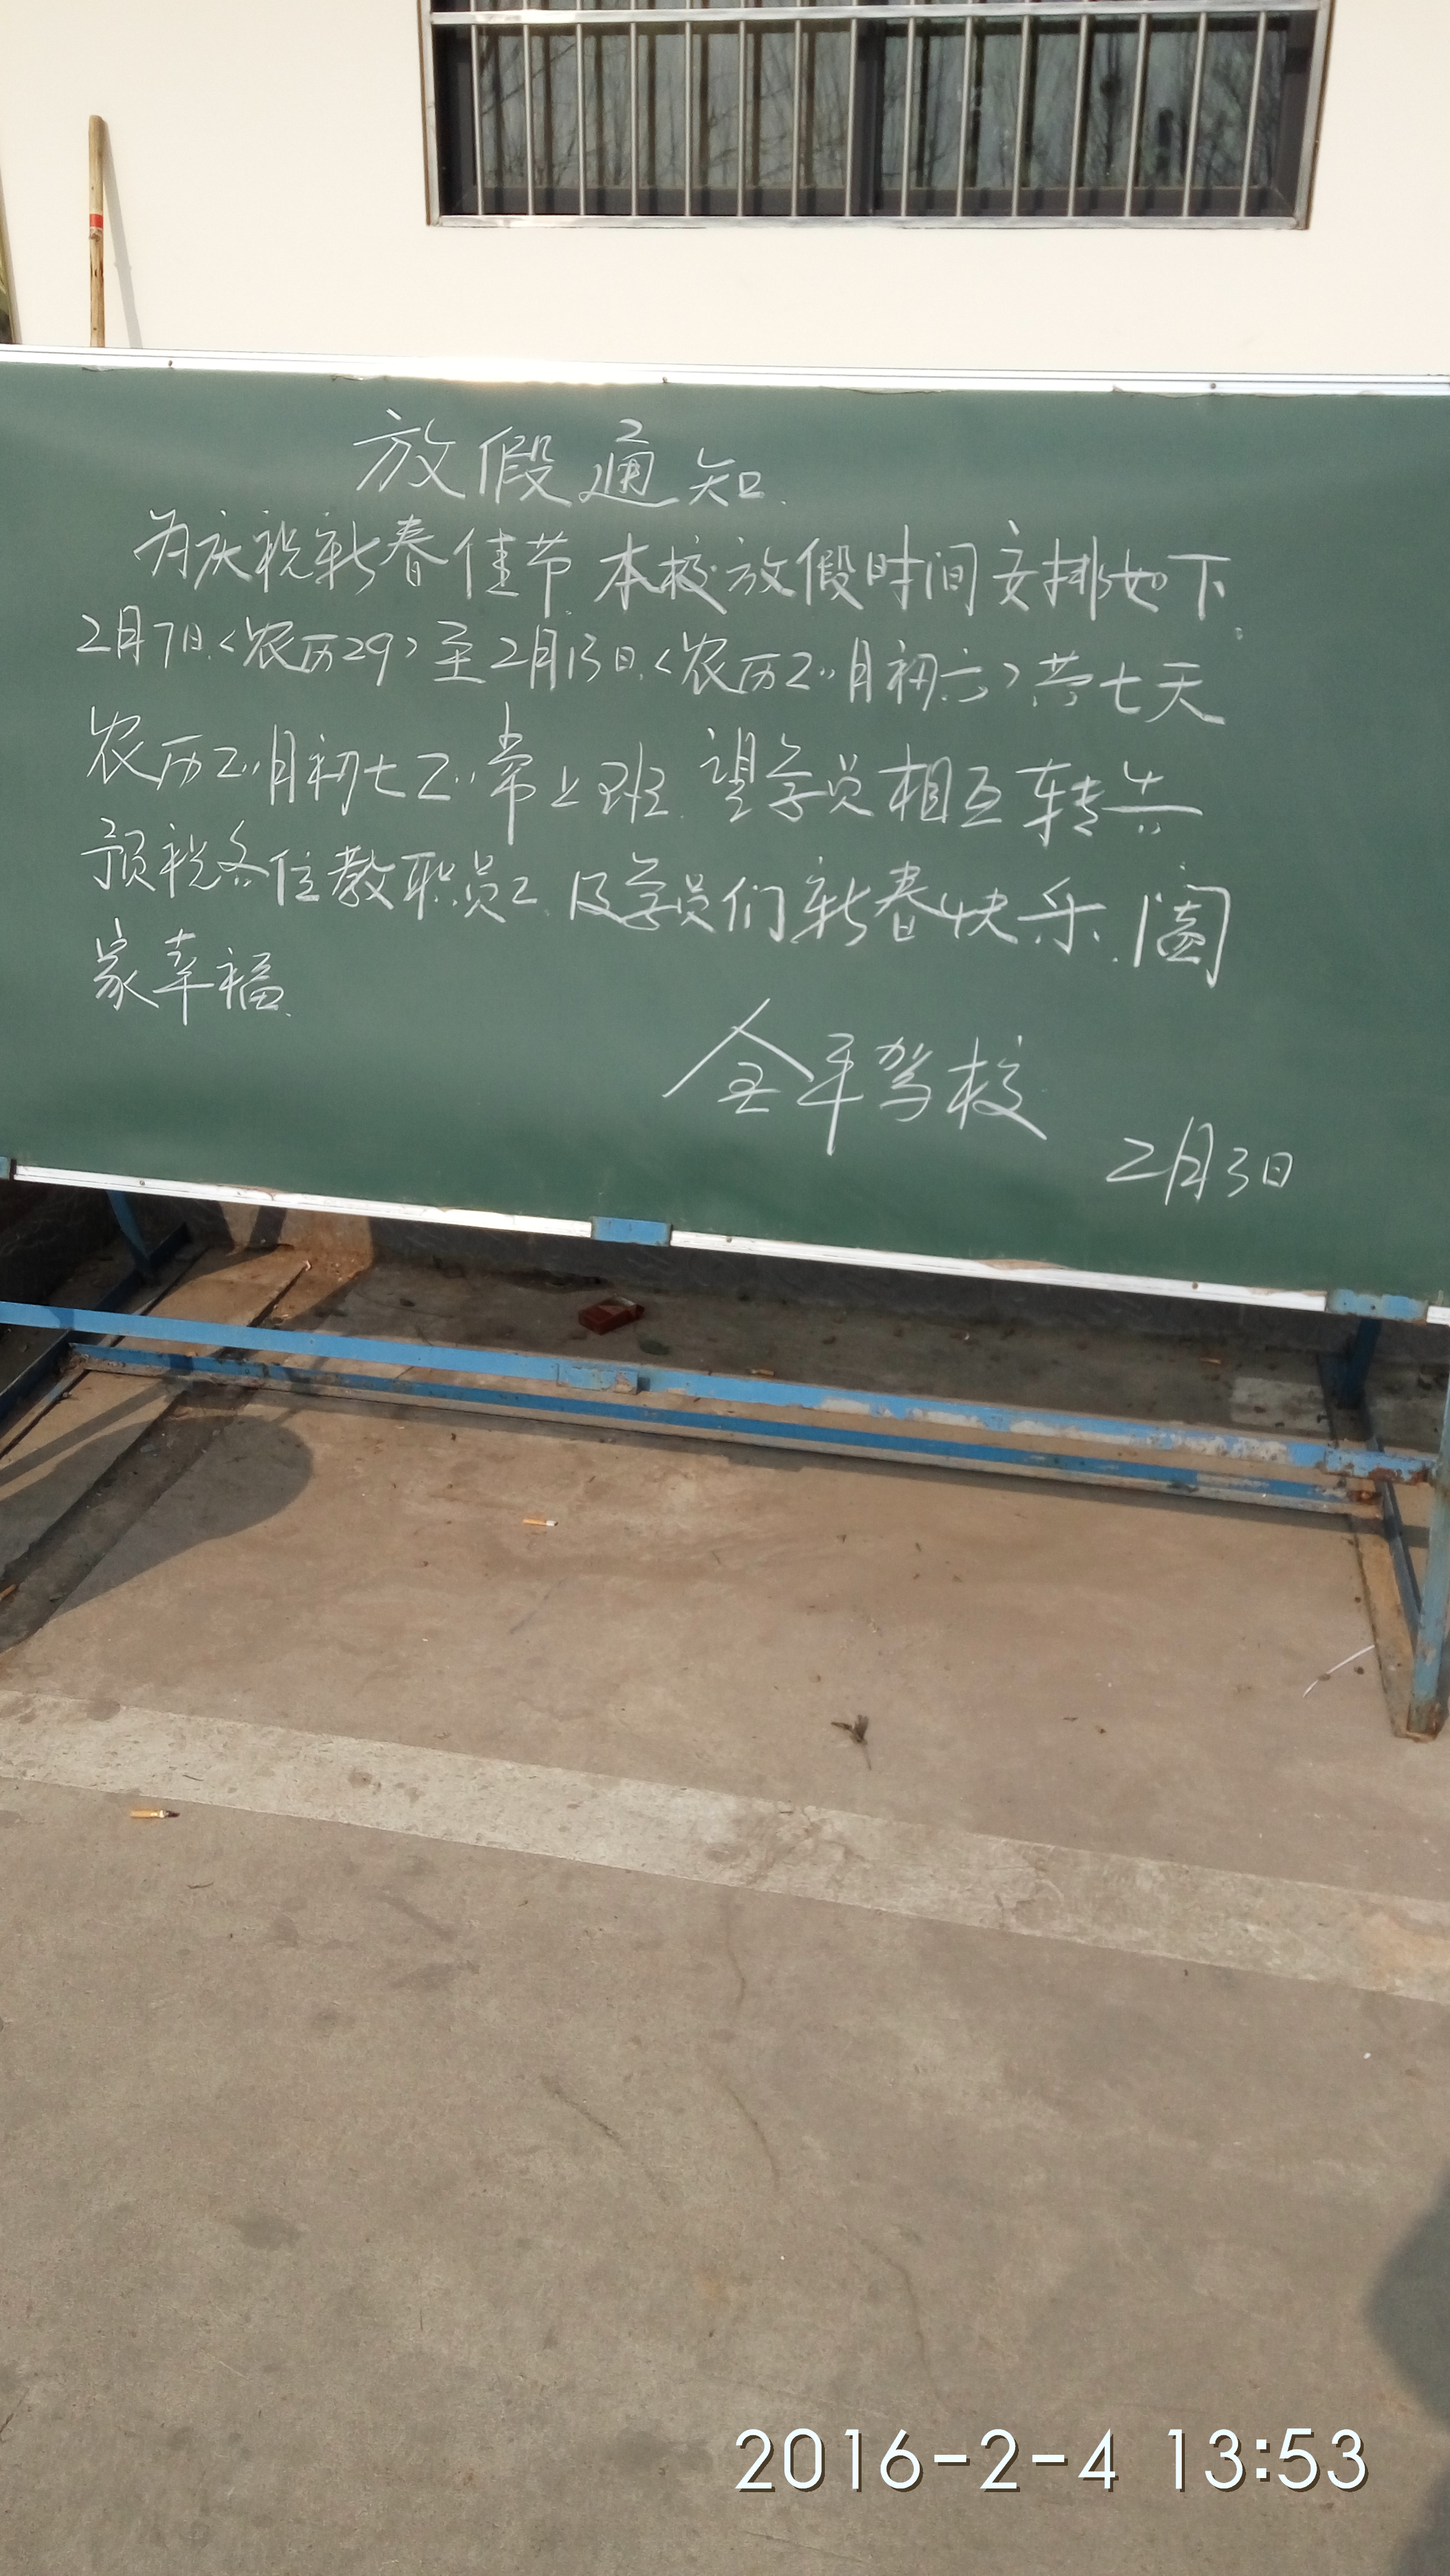 放假通知.
为庆祝新春佳节.本校放假时间安排如下:
2月7日<农历29>至2月13日.<农历正月初六>共七天
农历正月初七正常上班.望学员相互转告
预祝各位教职员工.及学员们新春快乐.阖
家幸福.
全平驾校
2月3日
2016-2-4 13:53